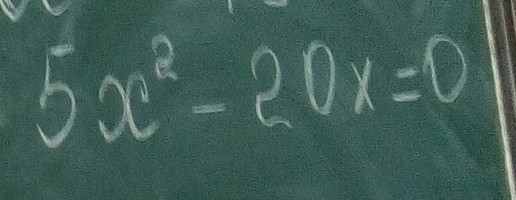 5x² - 20x = 0